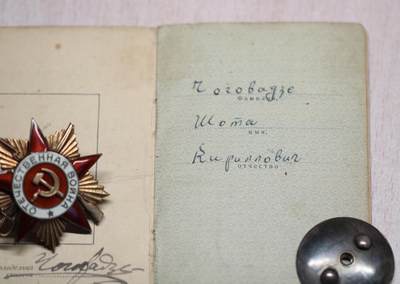 Чоговадзе
фамилия
Шота
имя
Кириллович
отчество
ОТЕЧЕСТВЕННАЯ ВОЙНА
Чоговадзе